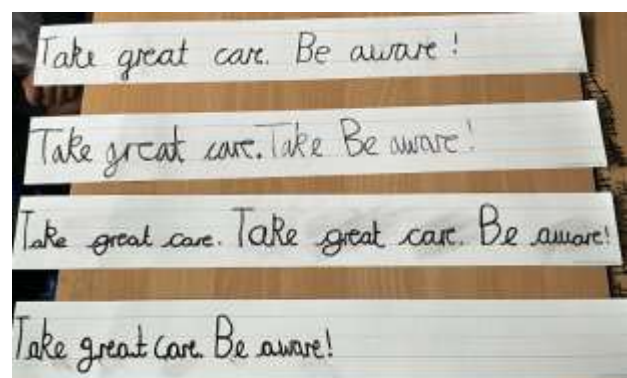 Take great care. Be aware!
Take great care. Take Be aware!
Take great care. Take great care. Be aware!
Take great care. Be aware!